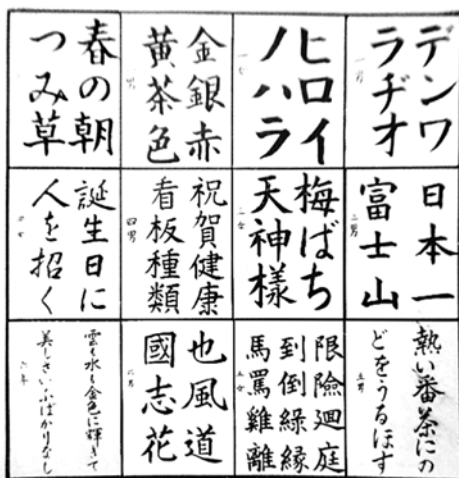 デンワ
ラヂオ
一男
ヒロイ
ノハラ
一女
金銀赤
黄茶色
男
春の朝
つみ草
日本一
富士山
二男
梅ばち
天神樣
二女
祝賀健康
看板種類
四男
誕生日に
人を招く
四女
熱い番茶にの
どをうるほす
五男
限險廻庭
到倒緑縁
馬罵雞離
五女
也風道
國志花
六男
雲も水も金色に輝きて
美しさいふばかりなし